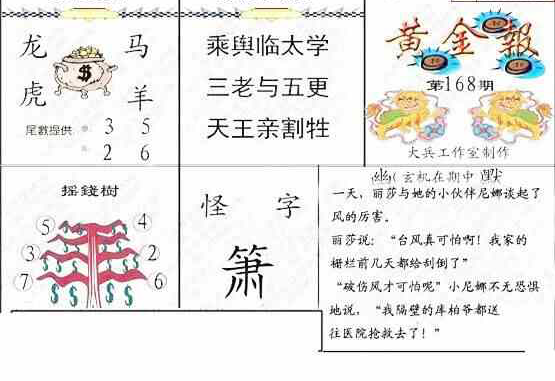 龙 马
虎 羊
尾數提供 3 5
2 6
乘舆临太学
三老与五更
天王亲割牲
黄金報
第168期
大兵工作室制作
摇錢樹
5 4
3 2
7 6
怪 字
箫
幽(玄机在期中)默
一天，丽莎与她的小伙伴尼娜谈起了
风的厉害。
丽莎说：“台风真可怕啊！我家的
栅栏前几天都给刮倒了”
“破伤风才可怕呢”小尼娜不无恐惧
地说，“我隔壁的库柏爷都送
往医院抢救去了！”